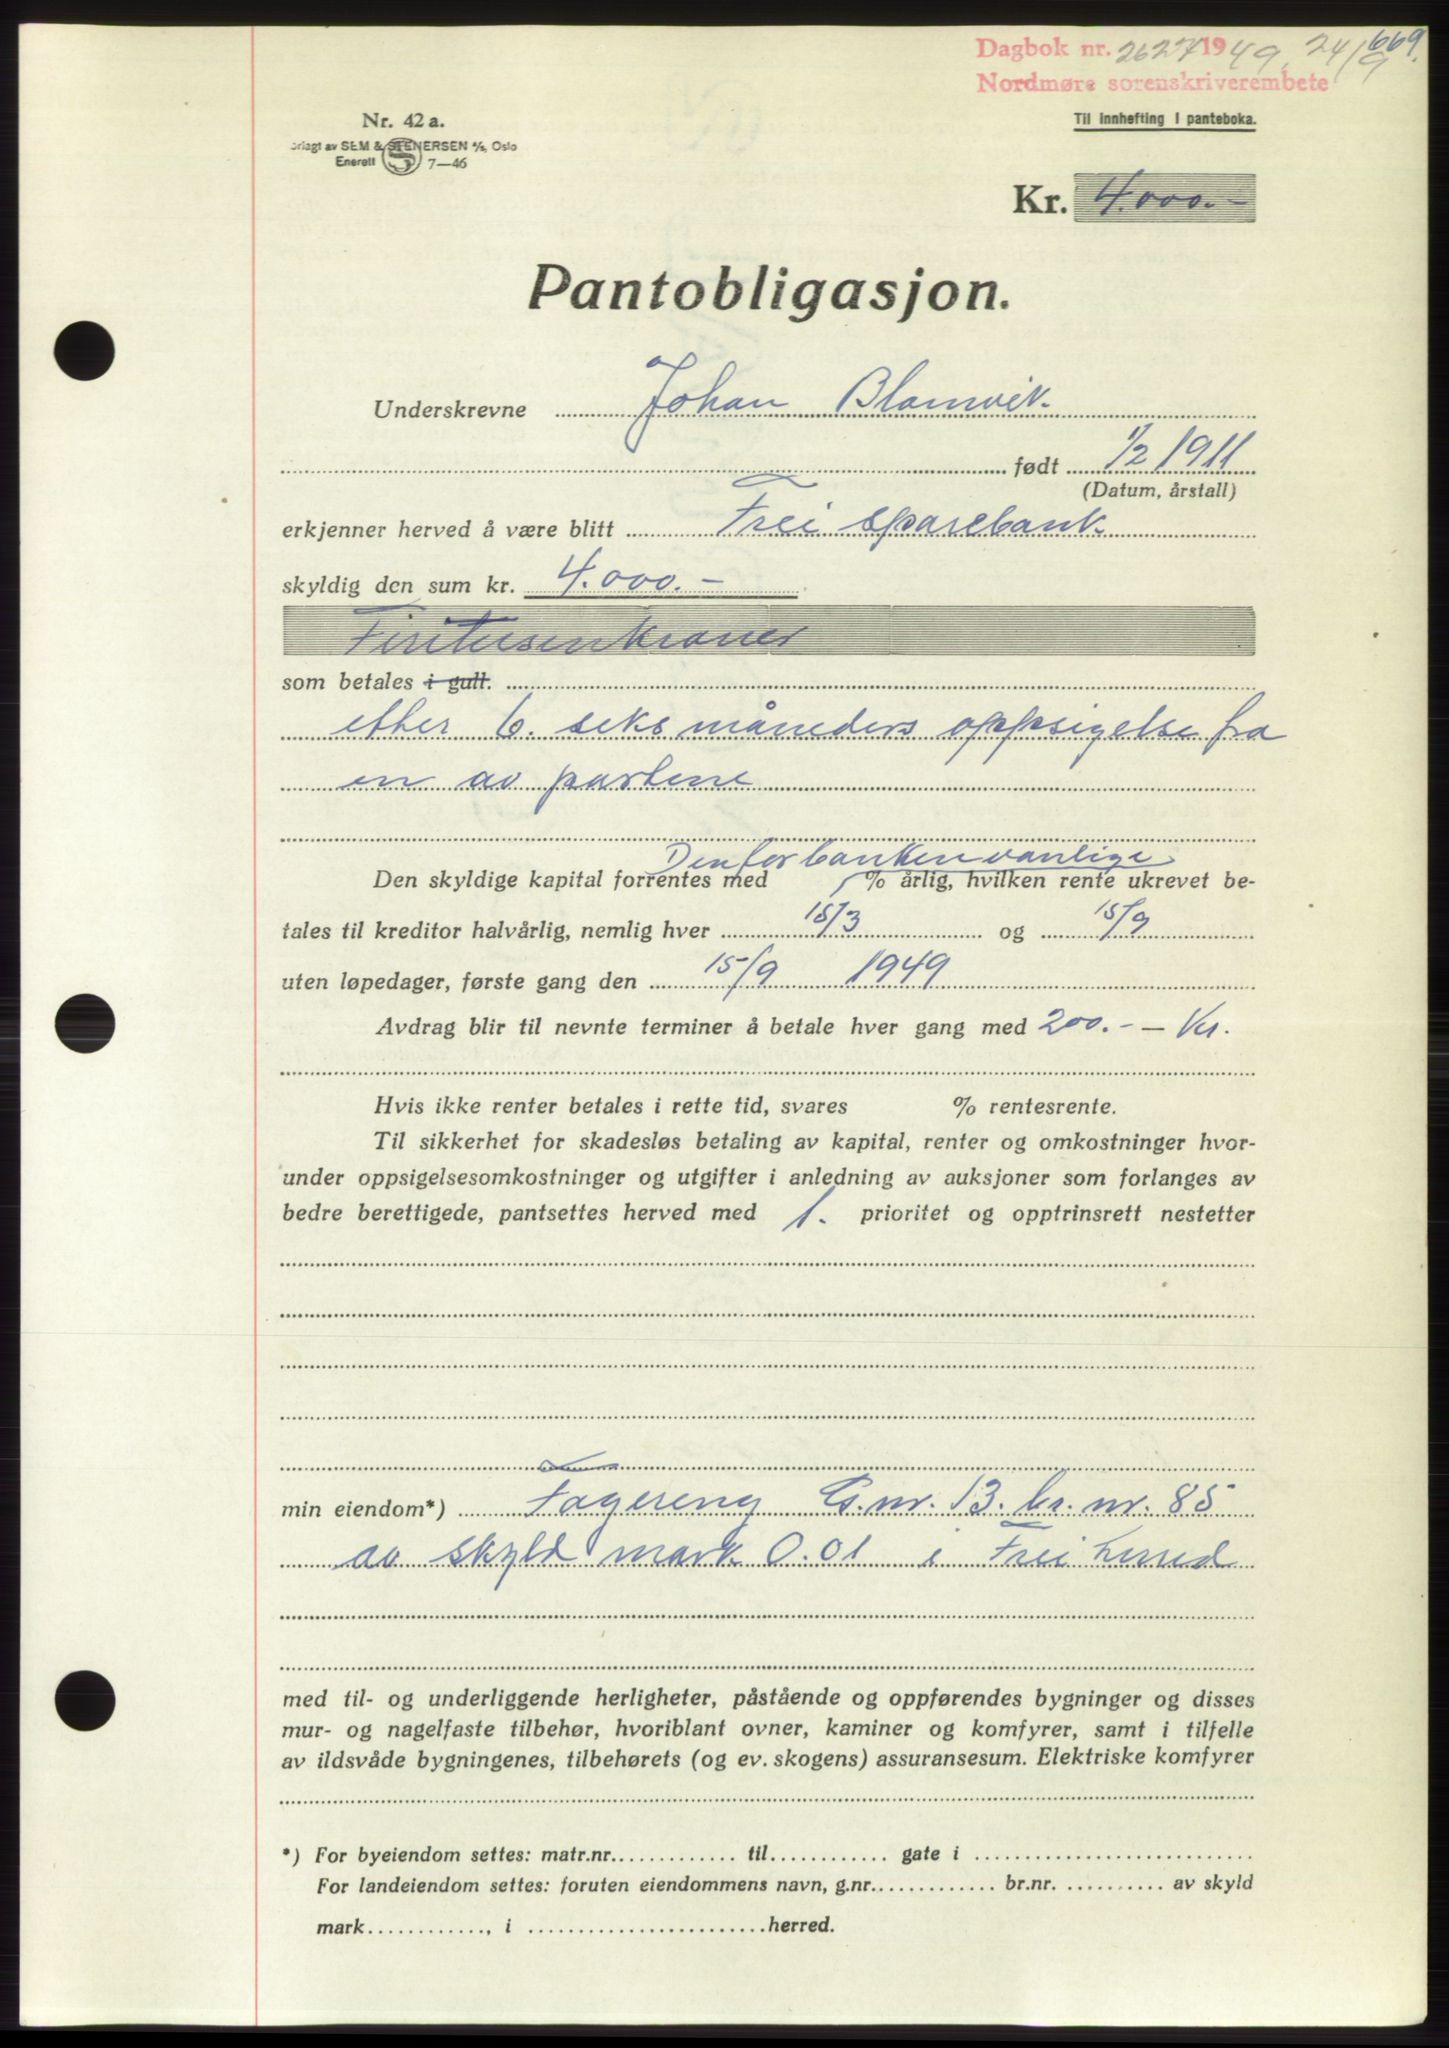 669.
Dagbok nr. 2627 1949 24/9
Nordmøre sorenskriverembete
Nr. 42 a.
Til innhefting i panteboka.
orlagt av SEM & STENERSEN A/S, Oslo
Enerett S 7—46
Kr. 4.000.-
Pantobligasjon.
Underskrevne Johan Blomvik.
født 1/2 1911
(Datum, årstall)
erkjenner herved å være blitt Frei sparebank
skyldig den sum kr. 4.000.-
Firetusenkroner
som betales i gull.
etter 6. seks måneders oppsigelse fra
en av partene
Den for banken vanlige
Den skyldige kapital forrentes med % årlig, hvilken rente ukrevet be-
tales til kreditor halvårlig, nemlig hver 15/3 og 15/9
uten løpedager, første gang den 15/9 1949
Avdrag blir til nevnte terminer å betale hver gang med 200.- — Kr.
Hvis ikke renter betales i rette tid, svares % rentesrente.
Til sikkerhet for skadesløs betaling av kapital, renter og omkostninger hvor-
under oppsigelsesomkostninger og utgifter i anledning av auksjoner som forlanges av
bedre berettigede, pantsettes herved med 1. prioritet og opptrinsrett nestetter
min eiendom*) Fagereng G.nr. 13. br. nr. 85
av skyld mark 0.01 i Frei herred
med til- og underliggende herligheter, påstående og oppførendes bygninger og disses
mur- og nagelfaste tilbehør, hvoriblant ovner, kaminer og komfyrer, samt i tilfelle
av ildsvåde bygningenes, tilbehørets (og ev. skogens) assuransesum. Elektriske komfyrer
*) For byeiendom settes: matr.nr. til gate i
For landeiendom settes: foruten eiendommens navn, g.nr. br.nr. av skyld
mark , i herred.